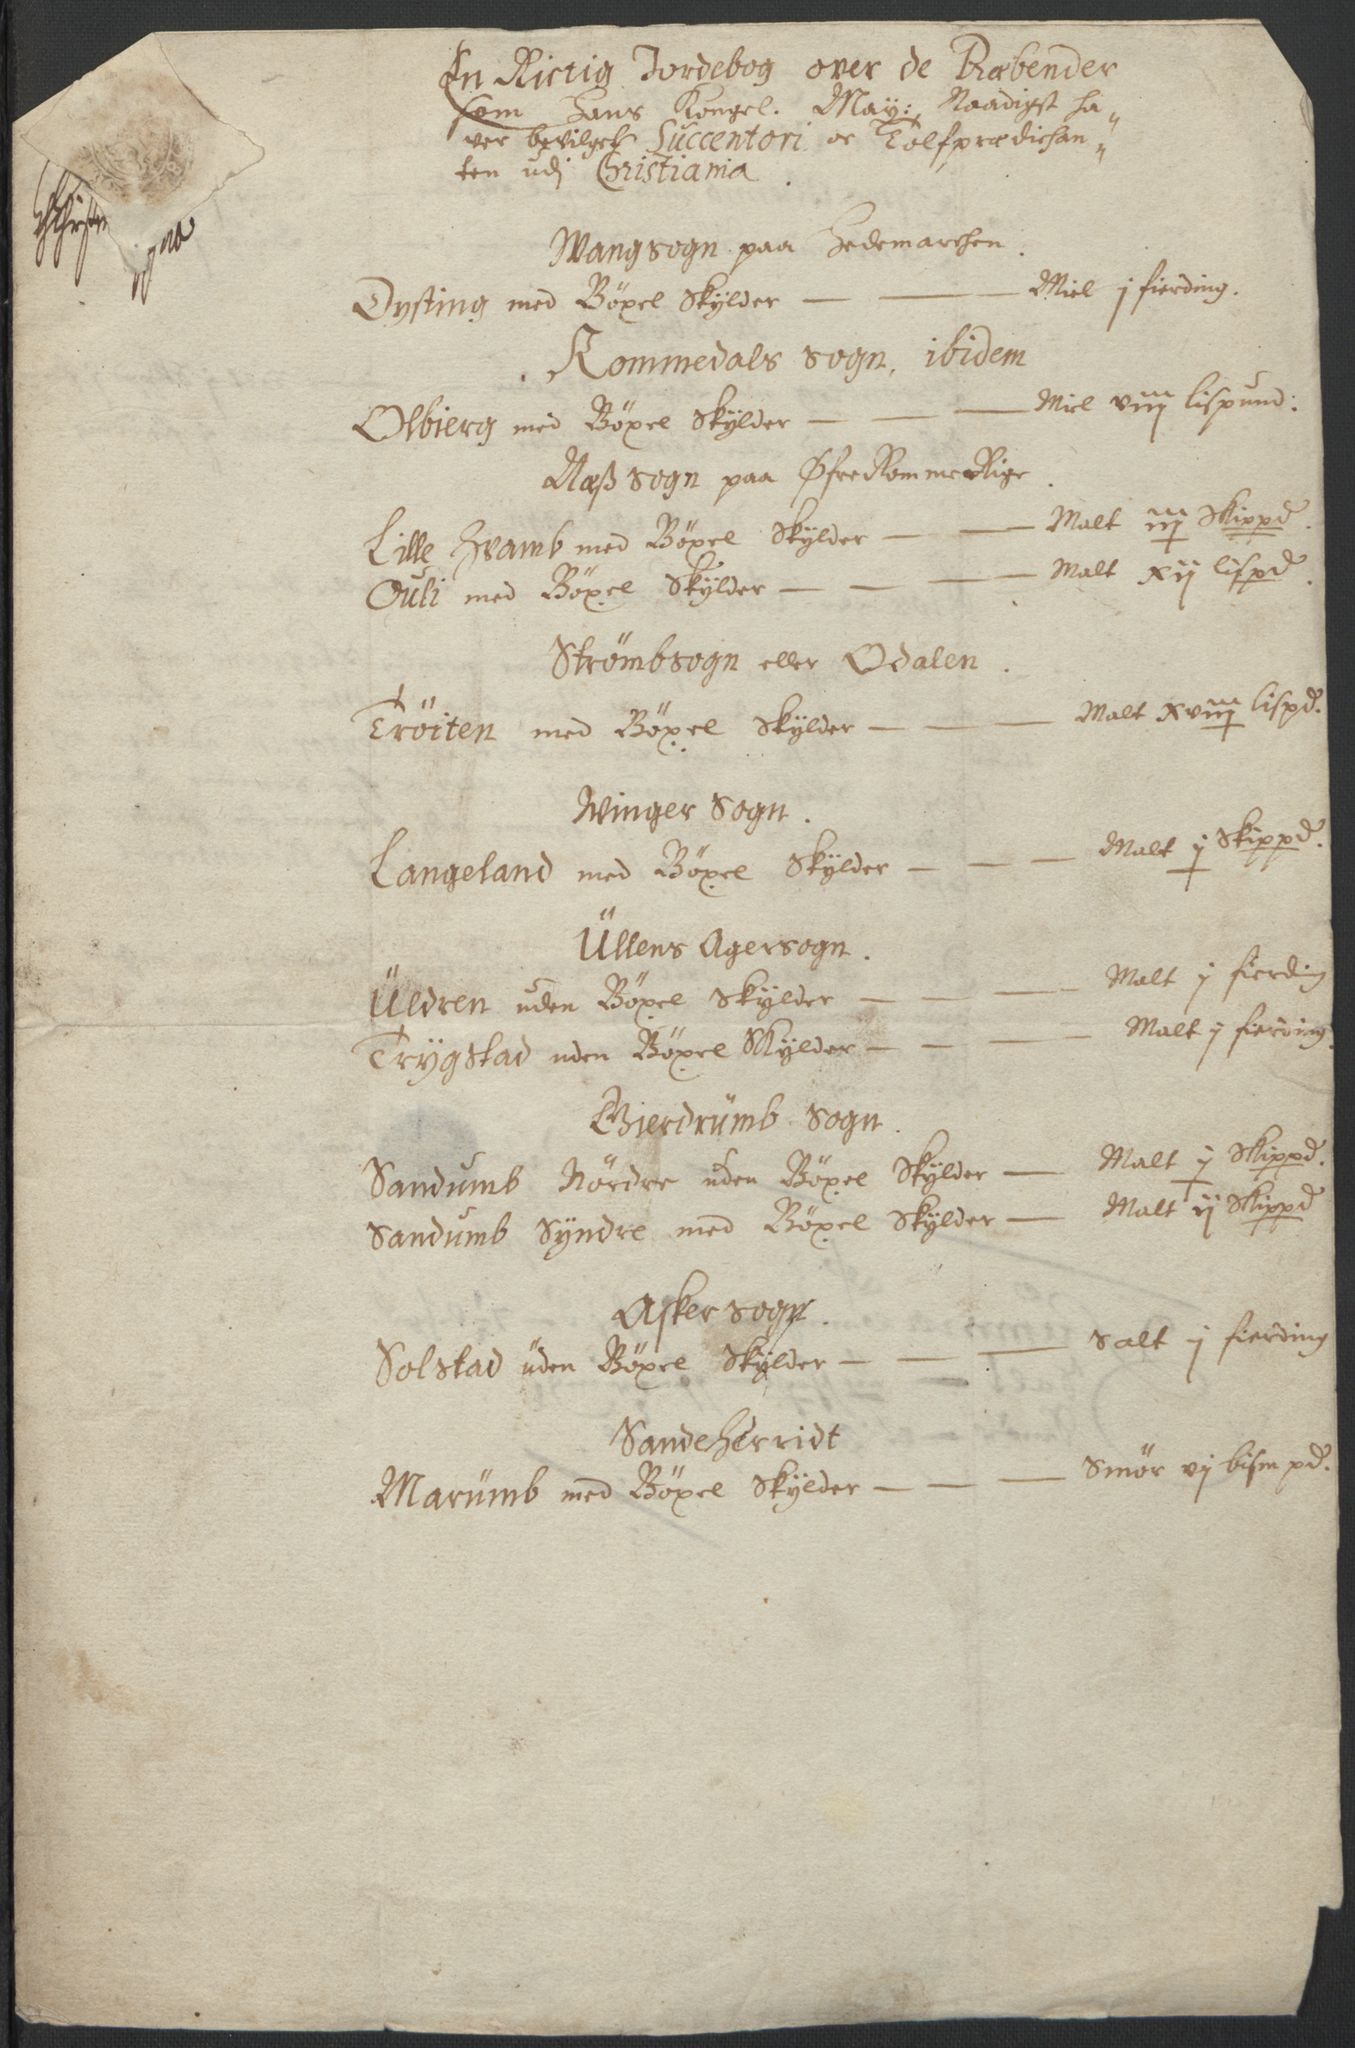 En Rictig Jordebog over de Præbender
som Hans Kongel. May: Naadigst ha„
ver bevilget Succentori oc Tolfprædichan„
ten udj Christiania.
Wangsogn paa Hedemarchen.
Dysting med Böxel Skÿlder — — Miel j fierding.
Rommedals sogn, ibidem
Olbierg med Böxel Skÿlder — — — Miel viij lispund:
Næß sogn paa ØfreRommeRige.
Lille Hvamb med Böxel Skÿlder — — Malt iij Skippd.
Ouli med Böxel Skÿlder — — — — Malt xij lispd.
Strömbsogn eller Odalen.
Tröiten med Böxel Skÿlder — — — Malt xviij lispd.
Winger Sogn.
Langeland med Böxel Skÿlder — — — Malt j Skippd.
Üllens Agersogn.
Üldren uden Böxel Skÿlder — — — Malt j fierding
Trÿgstad uden Böxel Skÿlder — — — Malt j fierding.
Gierdrümb Sogn.
Sandumb Nördre uden Böxel Skÿlder — Malt j Skippd.
Sandumb Sÿndre med Böxel Skÿlder — Malt ij Skippd
Asker sogn.
Solstad üden Böxel Skÿlder — — — Salt j fierding
Sandeherridt
Marümb med Böxel Skÿlder — — — Smör vj bism pd.